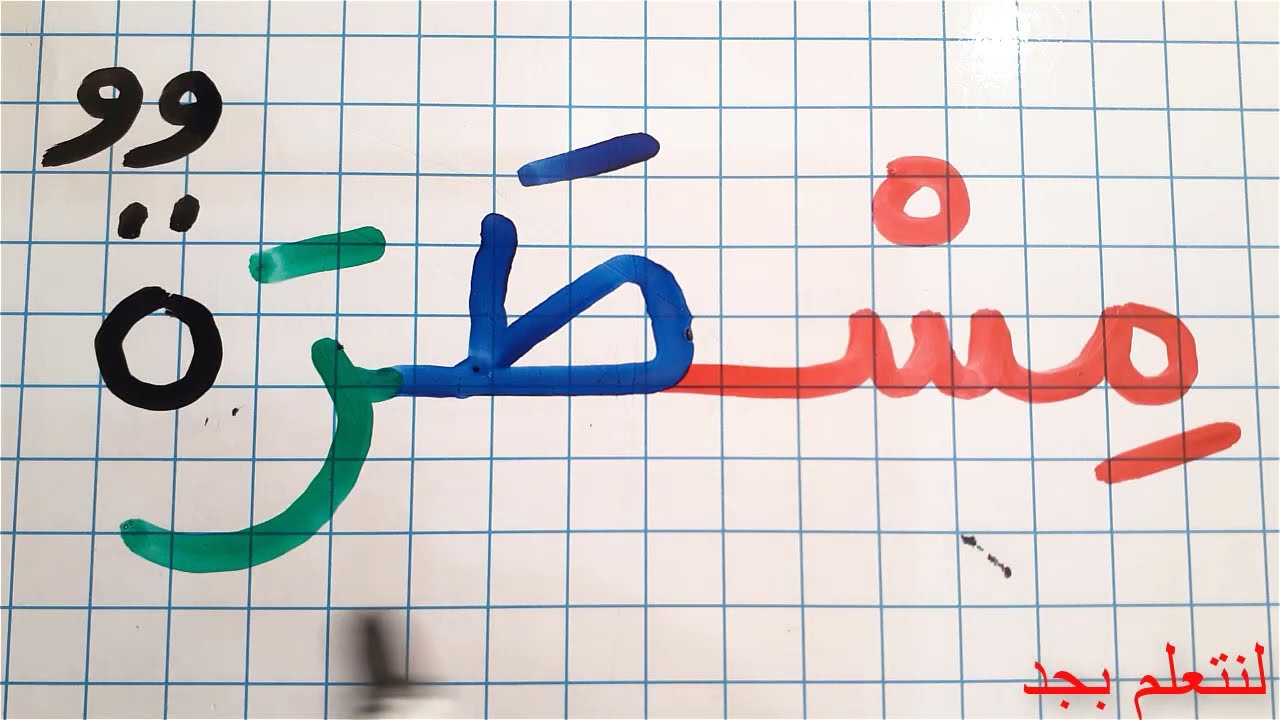 مِسْطَرَةٌ
لنتعلم بجد